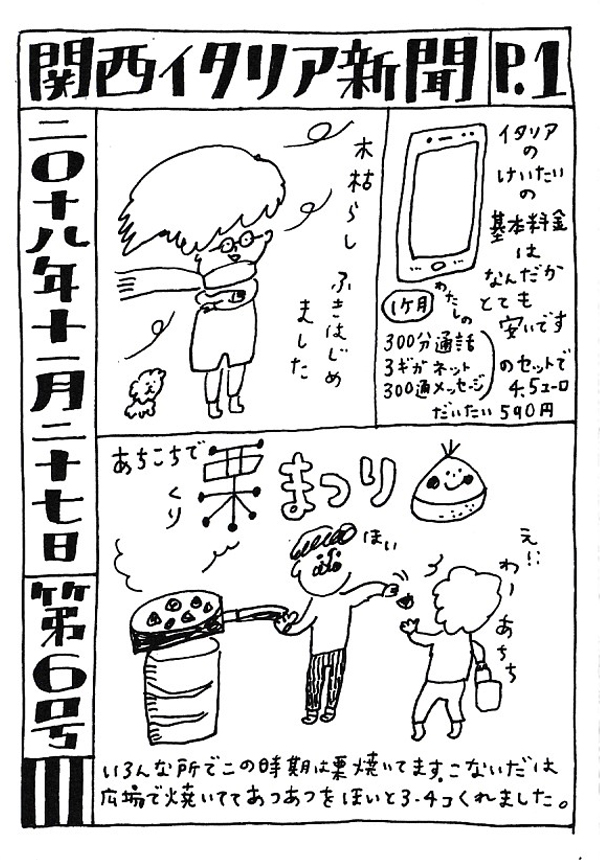 関西イタリア新聞
P.1
二〇十八年十一月二十七日
第6号
木枯らし
ふきはじめ
ました
イタリア
の
けいたい
の
基本料金
は
なんだか
とても
安いです
わたしの
1ケ月
300分通話
3ギガネット
300通メッセージ
のセットで
4.5ユーロ
だいたい590円
あちこちで
栗まつり
くり
ほい
え!!
わー
あちち
いろんな所でこの時期は栗焼いてます。こないだは
広場で焼いててあつあつをほいと3-4コくれました。